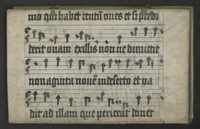 mo qui habet centū oues et si perdi
derit unam ex illis non ne dimittit
nonaginta nouē in deserto et va
dit ad illam que perierat donec